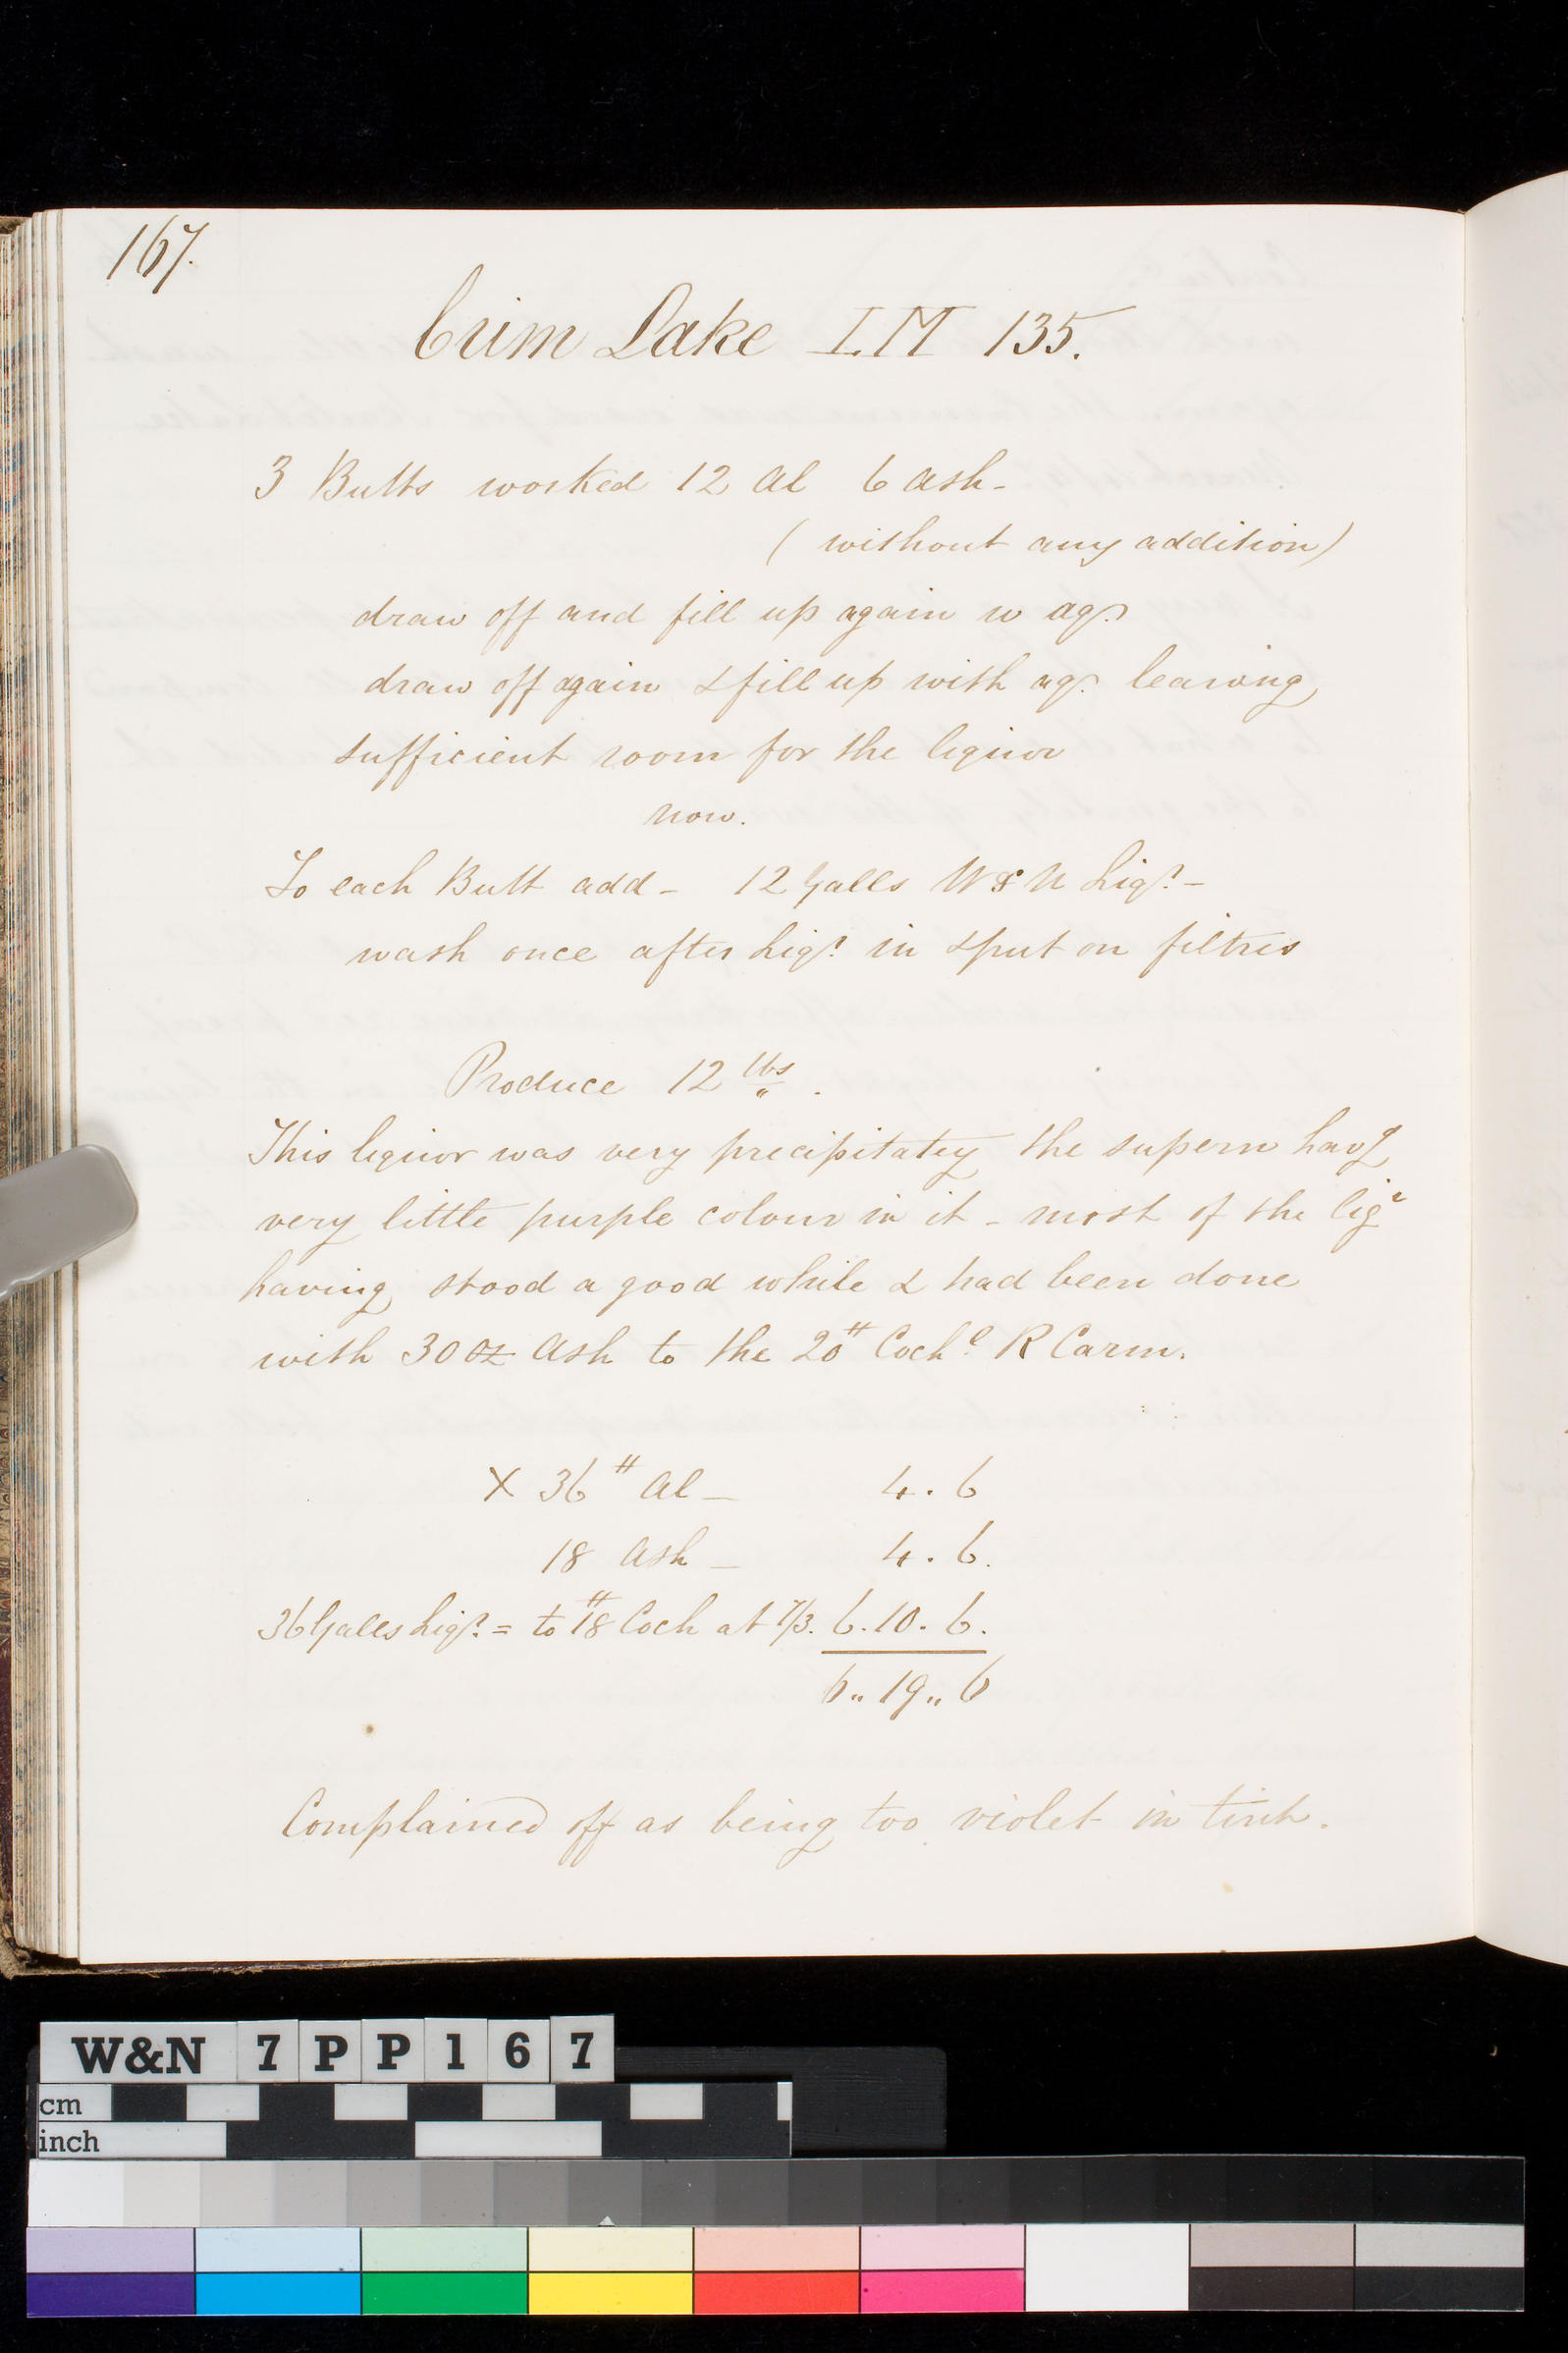 167.
Crim Lake I.M 135.
3 Butts worked 12 al 6 ash -
( without any addition )
draw off and fill up again w aq:
draw off again & fill up with aq: leaving
sufficient room for the liquor
now.
To each Butt add - 12 Galls W & N Liqr. -
wash once after Liqr. in & put on filtres
Produce 12 lbs.
This liquor was very precipitatey the supern havg
very little purple colour in it - most of the liqr
having stood a good while & had been done
with 30 oz ash to the 20 # Cochl. R Carm.
X 36 # al - 4 . 6
18 ash - 4 . 6.
36 Galls Liqr. = to 18 # Coch at 7/3. 6 . 10 . 6.
6 „ 19 „ 6
Complained off as being too violet in tint.
W&N 7 P P 1 6 7
cm
inch